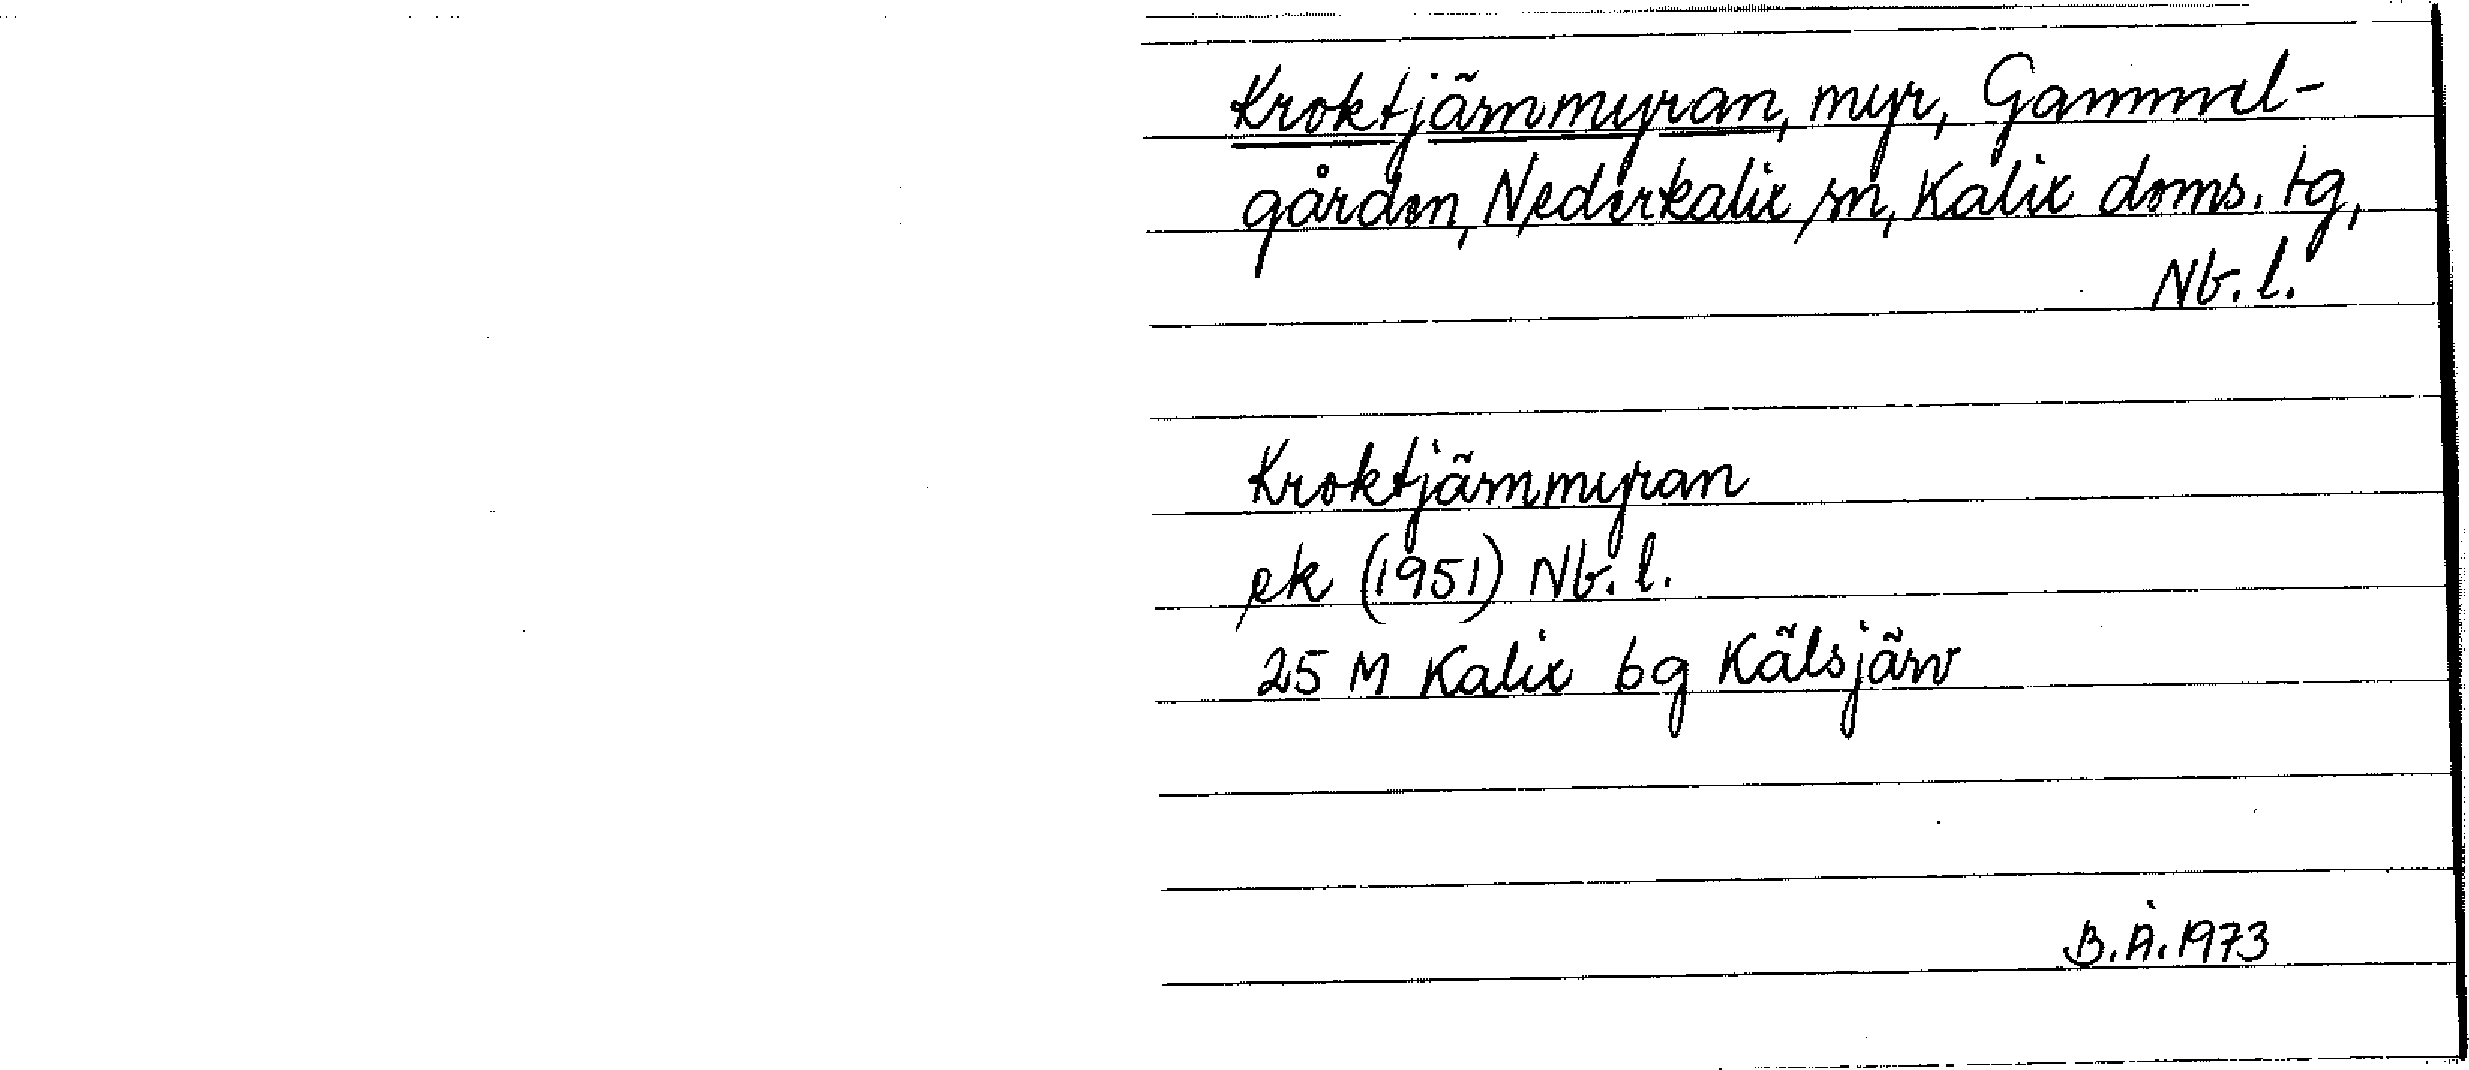 Kroktjärnmyran, myr, Gammel-
gården, Nederkalix sn, Kalix doms. tg,
Nb. l.
Kroktjärnmyran
ek (1951) Nb. l.
25 M Kalix bg Kälsjärv
B.Å. 1973